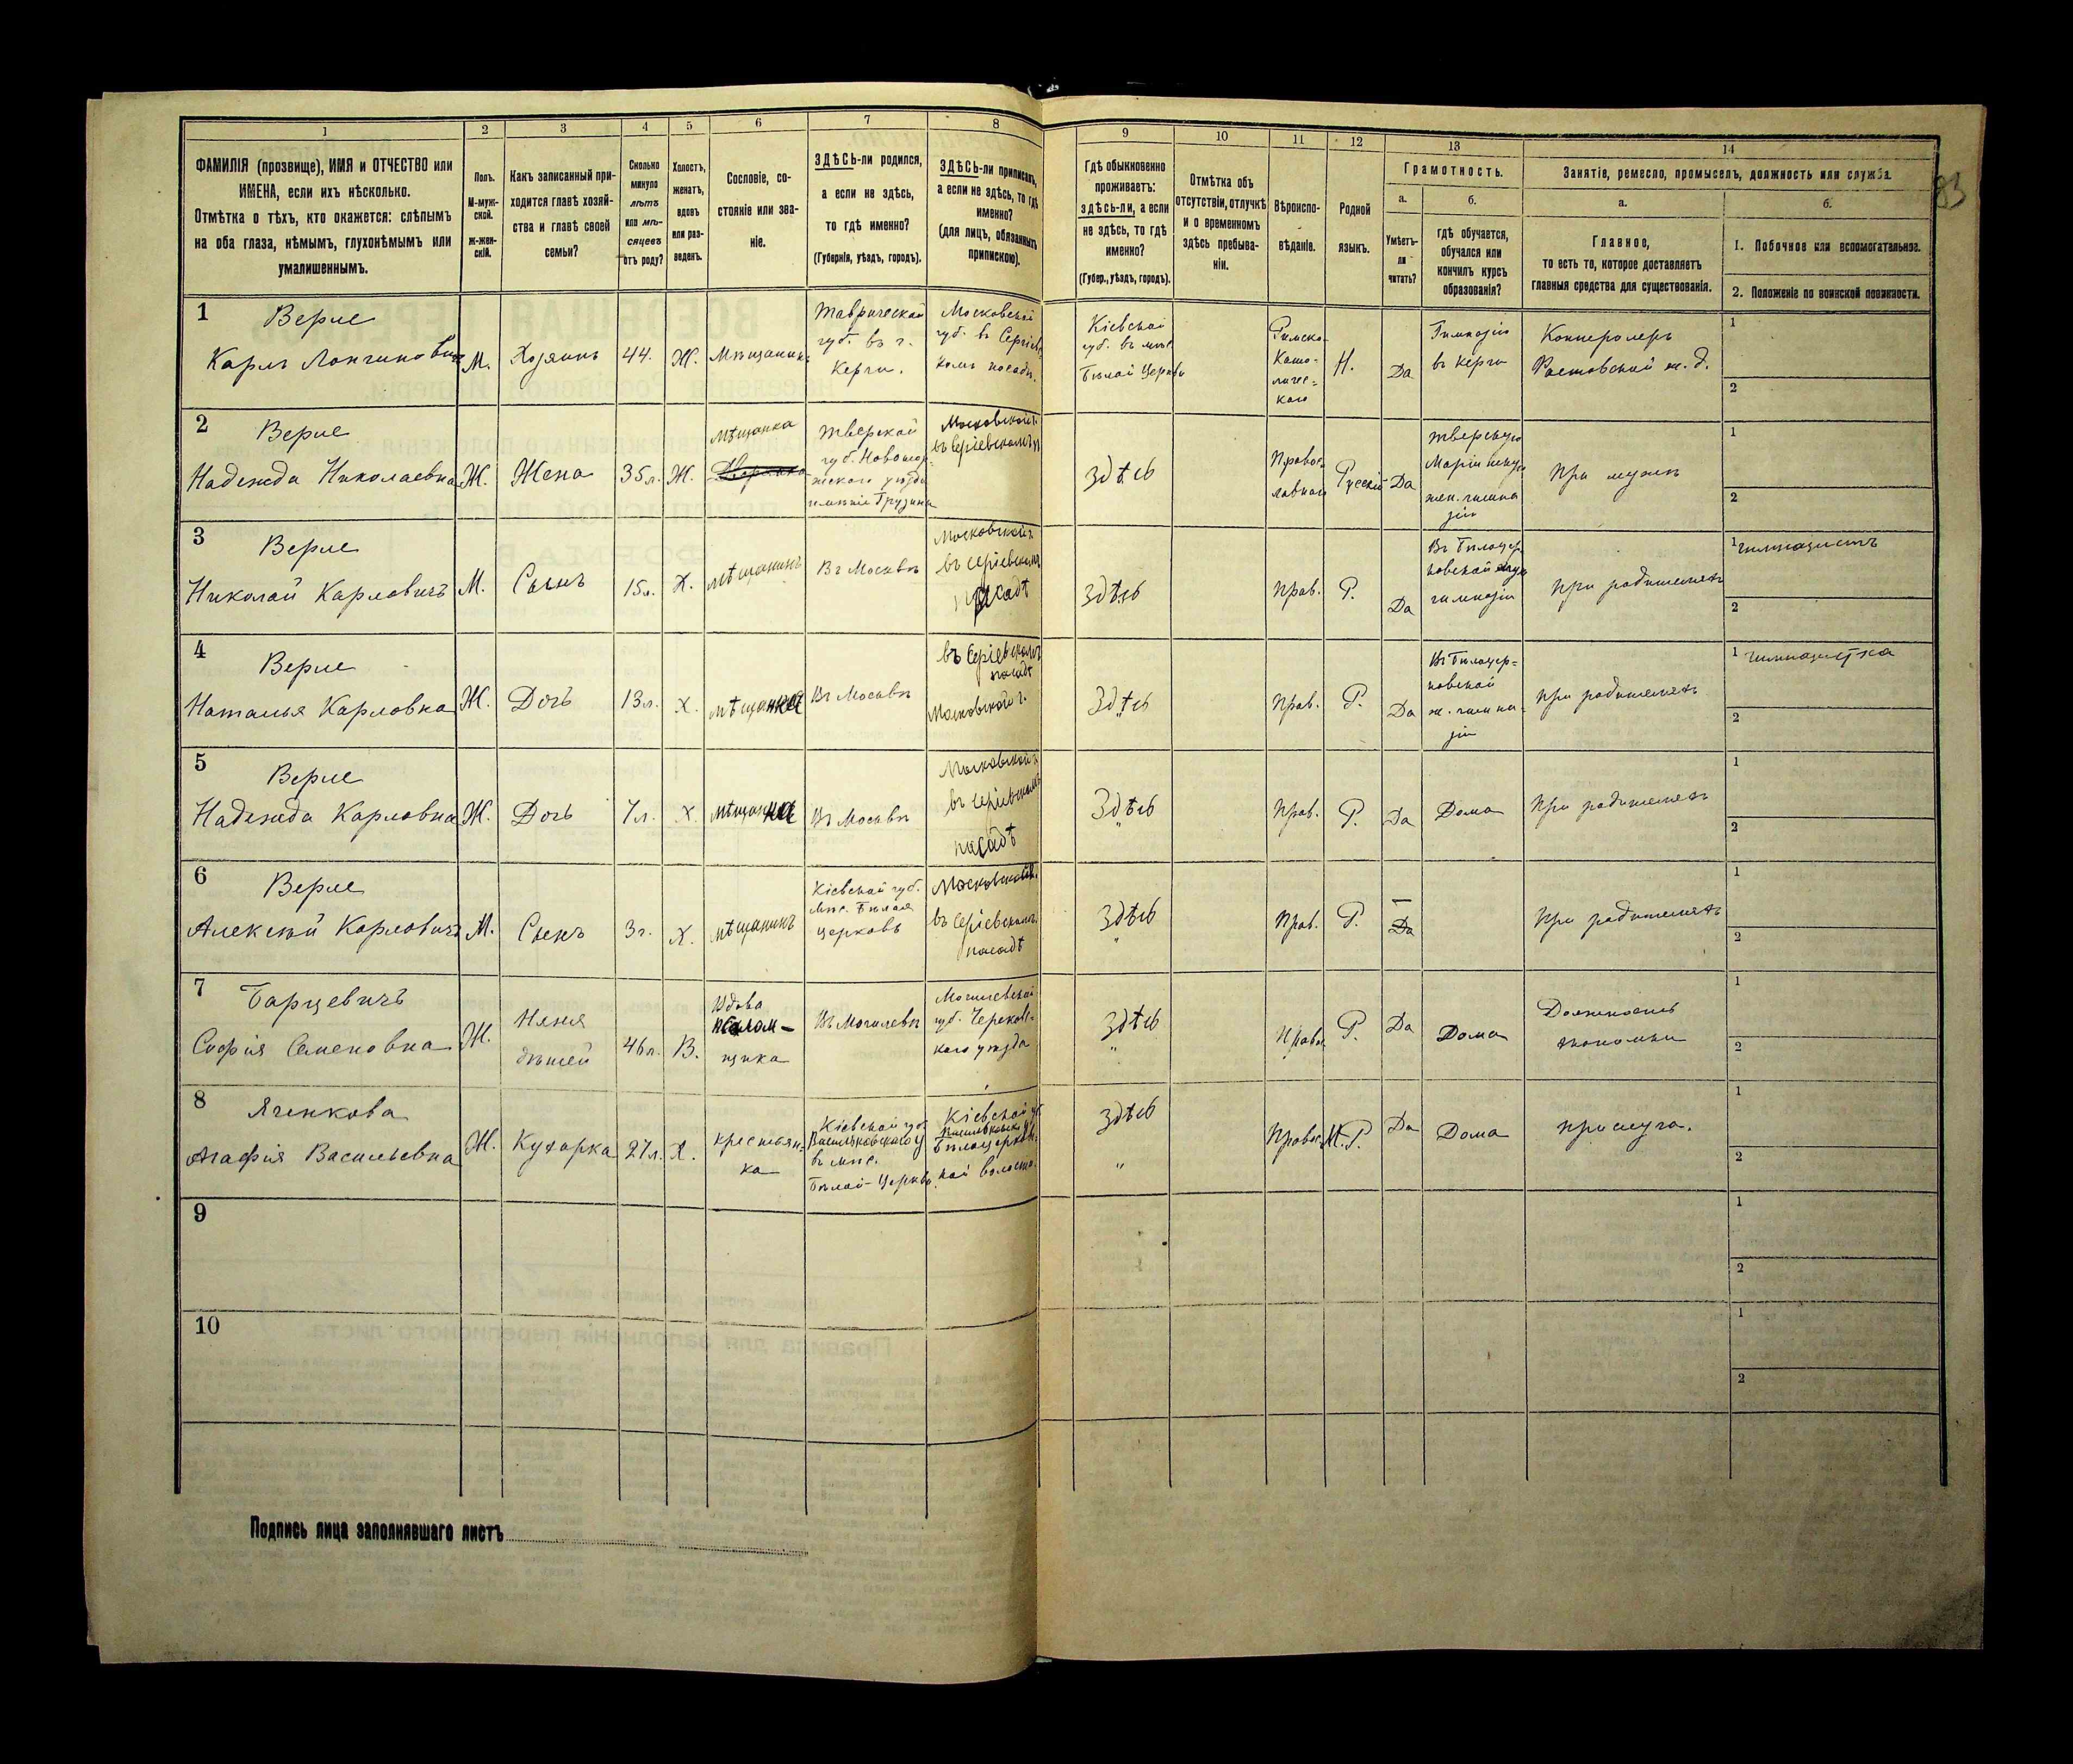 1 2 3 4 5 6 7 8 9 10 11 12 13 14
ФАМИЛІЯ (прозвище), ИМЯ и ОТЧЕСТВО или
ИМЕНА, если ихъ нѣсколько.
Отмѣтка о тѣхъ, кто окажется: слѣпымъ
на оба глаза, нѣмымъ, глухонѣмымъ или
умалишеннымъ.
Полъ.
М-муж-
ской.
ж-жен-
скій.
Какъ записанный при-
ходится главѣ хозяй-
ства и главѣ своей
семьи?
Сколько
минуло
лѣтъ
или мѣ-
сяцевъ
отъ роду?
Холостъ,
женатъ,
вдовъ
или раз-
веденъ.
Сословіе, со-
стояніе или зва-
ніе.
ЗДѢСЬ-ли родился,
а если не здѣсь,
то гдѣ именно?
(Губернія, уѣздъ, городъ).
ЗДѢСЬ-ли приписанъ,
а если не здѣсь, то гдѣ
именно?
(для лицъ, обязанныхъ
припискою).
Гдѣ обыкновенно
проживаетъ:
здѣсь-ли, а если
не здѣсь, то гдѣ
именно?
(Губер., уѣздъ, городъ).
Отмѣтка объ
отсутствіи, отлучкѣ
и о временномъ
здѣсь пребыва-
ніи.
Вѣроиспо-
вѣданіе.
Родной
языкъ.
Грамотность.
а.
Умѣетъ-
ли
читать?
б.
гдѣ обучается,
обучался или
кончилъ курсъ
образованія?
Занятіе, ремесло, промыселъ, должность или служба.
а.
Главное,
то есть то, которое доставляетъ
главныя средства для существованія.
б.
1. Побочное или вспомогательное.
2. Положеніе по воинской повинности.
83
1
Верле
Карлъ Лонгиновичъ
М.
Хозяинъ
44.
Ж.
Мѣщанинъ
Таврической
губ. въ г.
Керчи.
Московской
губ. въ Сергіевс
комъ посадѣ.
Кіевской
губ. въ мѣс.
Бѣлой Церкви
Римско-
Като-
личес-
каго
Н.
Да
Гимназію
въ Керчи
Контролеръ
Ростовской ж. д.
1
2
2
Верле
Надежда Николаевна
Ж.
Жена
35л.
Ж.
мѣщанка
Тверской
губ. Новотор-
жскаго уѣзда
имѣніе Грузины
Московской г.
въ Сергіевскомъ п
Здѣсь
Правос
лавная
Русскій
Да
Тверскую
Маріинскую
жен. гимна
зію
При мужѣ
1
2
3
Верле
Николай Карловичъ
М.
Сынъ
15л.
Х.
мѣщанинъ
Въ Москвѣ
Московской г.
въ Сергіевскомъ
посадѣ
Здѣсь
Прав.
Р.
Да
Въ Бѣлоцер
ковской муж
гимназіи
При родителяхъ
1 гимназистъ
2
4
Верле
Наталья Карловна
Ж.
Дочь
13л.
Х.
мѣщанка
Въ Москвѣ
въ Сергіевскомъ
посадѣ
Московской г.
Здѣсь
Прав.
Р.
Да
Въ Бѣлоцер=
ковской
ж. гимна
зіи
При родителяхъ
1 гимназистка
2
5
Верле
Надежда Карловна
Ж.
Дочь
7л.
Х
мѣщанка
Въ Москвѣ
Московской г.
въ Сергіевскомъ
посадѣ
Здѣсь
Прав.
Р.
Да
Дома
При родителяхъ
1
2
6
Верле
Алексѣй Карловичъ
М.
Сынъ
3г.
Х.
мѣщанинъ
Кіевской губ.
Мѣс. Бѣлая
церковь
Московской г.
въ Сергіевскомъ
посадѣ
Здѣсь
"
Прав.
Р.
—
Да
При родителяхъ
1
2
7
Барцевичъ
Софія Семеновна
Ж.
Няня
дѣтей
46л.
В.
Вдова
щика
Въ Могилевѣ
Могилевской
губ. Чериков-
каго уѣзда
Здѣсь
"
Правос
Р.
Да
Дома
Должность
экономки
1
2
8
Яченкова
Агафія Васильевна
Ж.
Кухарка
27л.
Х.
крестьян=
ка
Кіевской губ
Васильковскаго у
въ мѣс.
Бѣлой-Церкви
Кіевской губ
Васильковск у
Бѣлоцерковс
кой волости
Здѣсь
"
Правос
М. Р.
Да
Дома
прислуга.
1
2
9
1
2
10
1
2
Подпись лица заполнявшаго листъ